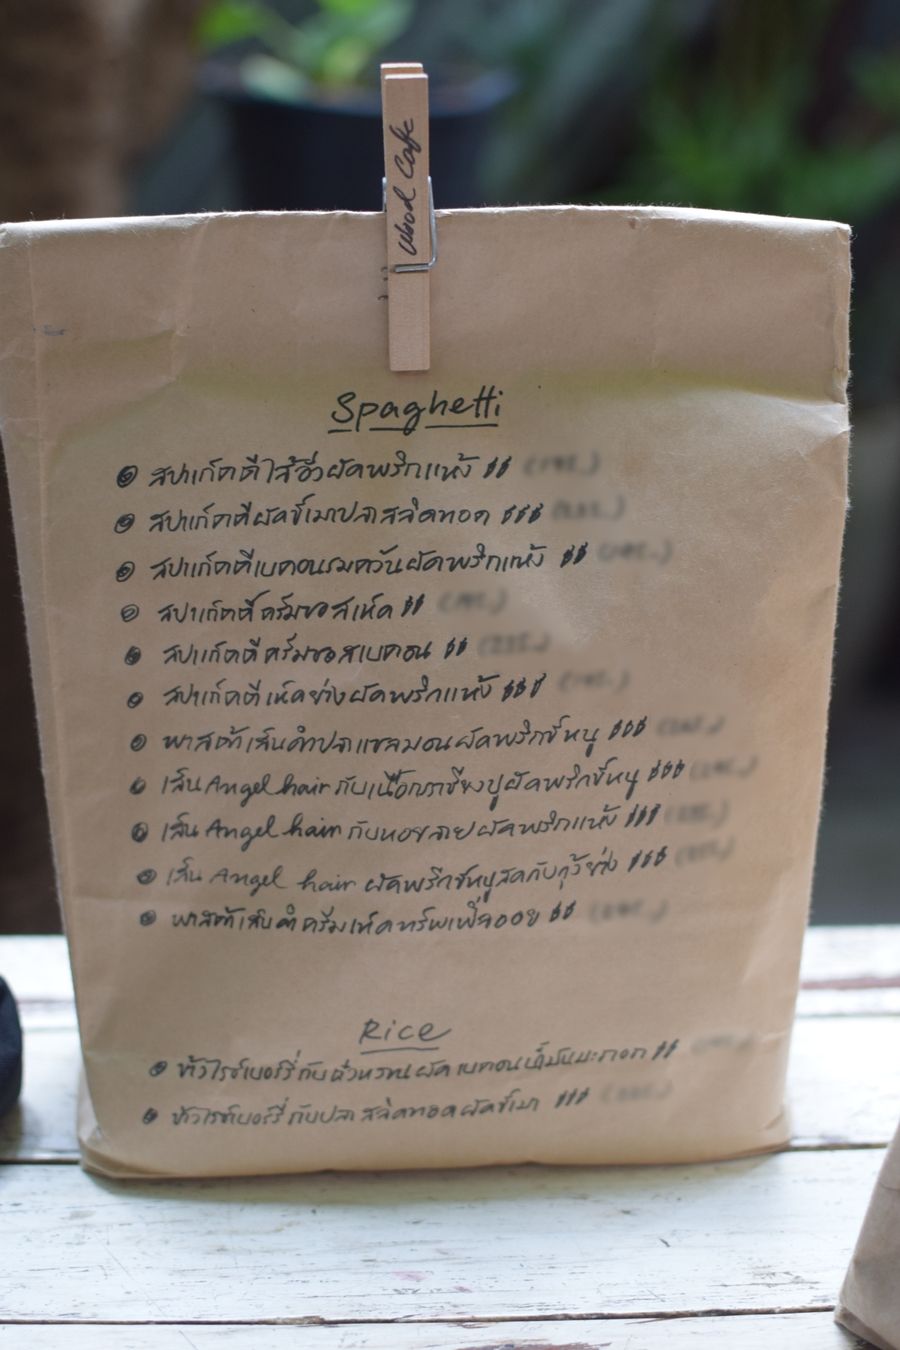 Wood Cafe
Spaghetti
สปาเก็ตตีไส้อั่วผัดพริกแห้ง
สปาเก็ตตีผัดขี้เมาปลาสลิดทอด
สปาเก็ตตีเบคอนรมควันผัดพริกแห้ง
สปาเก็ตตี้ครีมซอสเห็ด
สปาเก็ตตีครีมซอสเบคอน
สปาเก็ตตีเห็ดย่างผัดพริกแห้ง
พาสต้าเส้นดำปลาแซลมอนผัดพริกขี้หนู
เส้น Angel hair กับเนื้อกรรเชียงปูผัดพริกขี้หนู
เส้น Angel hair กับหอยลายผัดพริกแห้ง
เส้น Angel hair ผัดพริกขี้หนูสดกับกุ้งย่าง
พาสต้าเส้นดำครีมเห็ดทรัฟเฟิลออย
Rice
ข้าวไรซ์เบอร์รี่กับถั่วหวานผัดเบคอนน้ำมันมะกอก
ข้าวไรซ์เบอร์รี่กับปลาสลิดทอดผัดขี้เมา